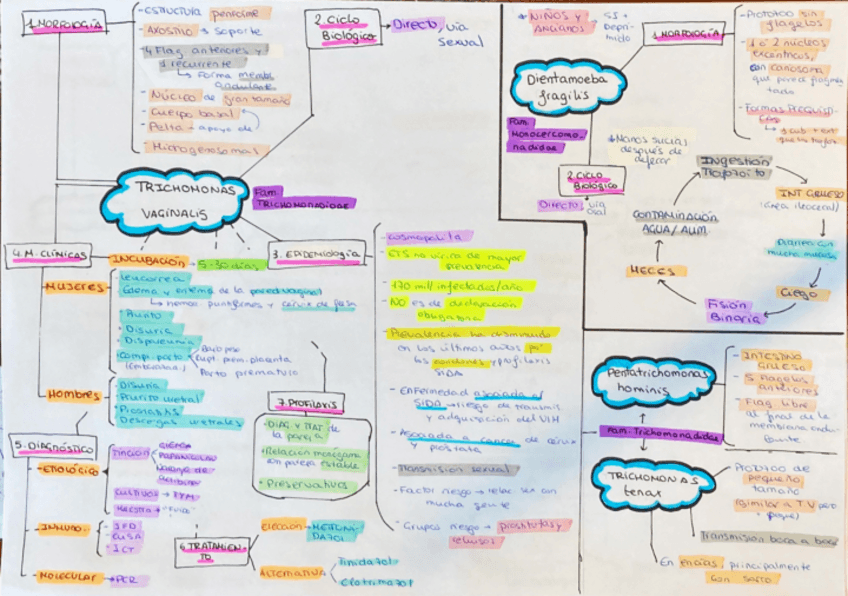 1. MORFOLOGÍA
- ESTRUCTURA periforme
- AXOSTILO → soporte
- 4 Flag. anteriores y
1 recurrente
↳ Forma memb.
ondulante
- NÚCLEO de gran tamaño
- Cuerpo basal
- Pelta → apoyo de
- Hidrogenosomas
2. Ciclo
Biológico
→ Directo, vía
sexual
TRICHOMONAS
VAGINALIS
Fam.
TRICHOMONADIDAE
4. M. CLÍNICAS
INCUBACIÓN → 5-30 días
MUJERES
- Leucorrea
- Edema y eritema de la pared vaginal
↳ hemor. puntiformes y cérvix de fresa
- Prurito
- Disuria
- Dispareunia
- Comp. parto
(embarazadas)
Bajo peso
Rupt. prem. placenta
Parto prematuro
Hombres
- Disuria
- Prurito uretral
- Prostatitis
- Descargas uretrales
5. DIAGNÓSTICO
- ETIOLÓGICO
TINCIÓN
GIEMSA
PAPANICOLAU
Naranja de
acridina
CULTIVOS → TYM
- INMUNO.
- IFD
- ELISA
- ICT
- MOLECULAR → PCR
6. TRATAMIEN-
TO
Elección → METRONI-
DAZOL
ALTERNATIVA
Tinidazol
Clotrimazol
7. PROFILAXIS
- DIAG y TTAT de
la pareja
- Relación monógama
con pareja estable
- Preservativos
3. EPIDEMIOLOGÍA
- Cosmopolita
- ETS no vírica de mayor
prevalencia
- 170 mill infectados/año
- NO es de declaración
obligatoria
- Prevalencia ha disminuido
en los últimos años por
los condones y profilaxis
SIDA
- Enfermedad asociada al
SIDA → riesgo de transmis.
y adquisición del VIH
- Asociada a cáncer de cérvix
y próstata
- Transmisión sexual
- Factor riesgo → relac. sex con
mucha gente
- Grupos riesgo → prostitutas y
reclusos
* NIÑOS y
ANCIANOS
→ SI
Depri-
mido
Dientamoeba
fragilis
Fam.
Monocercomo-
nadidae
1. MORFOLOGÍA
- Protozoo sin
flagelos
- 1 o 2 núcleos
excéntricos,
con cariosoma
que parece fragmen-
tado
- Formas Prequísti-
cas
2. Ciclo
Biológico
DIRECTO: vía
oral
* Manos sucias
después de
defecar
INGESTIÓN
TROFOZOÍTO
INT. GRUESO
(área ileocecal)
Diarrea con
mucha mucosa
Ciego
Fisión
Binaria
HECES
CONTAMINACIÓN
AGUA/ALIM.
Pentatrichomonas
hominis
- INTESTINO
GRUESO
- 5 flagelos
anteriores
- Flag. Libre
al final de la
membrana ondu-
lante
Fam. Trichomonadidae
TRICHOMONAS
tenax
Protozoo de
pequeño
tamaño
(similar a T.V pero
+ peque)
Transmisión boca a boca
En encías, principalmente
con sarro